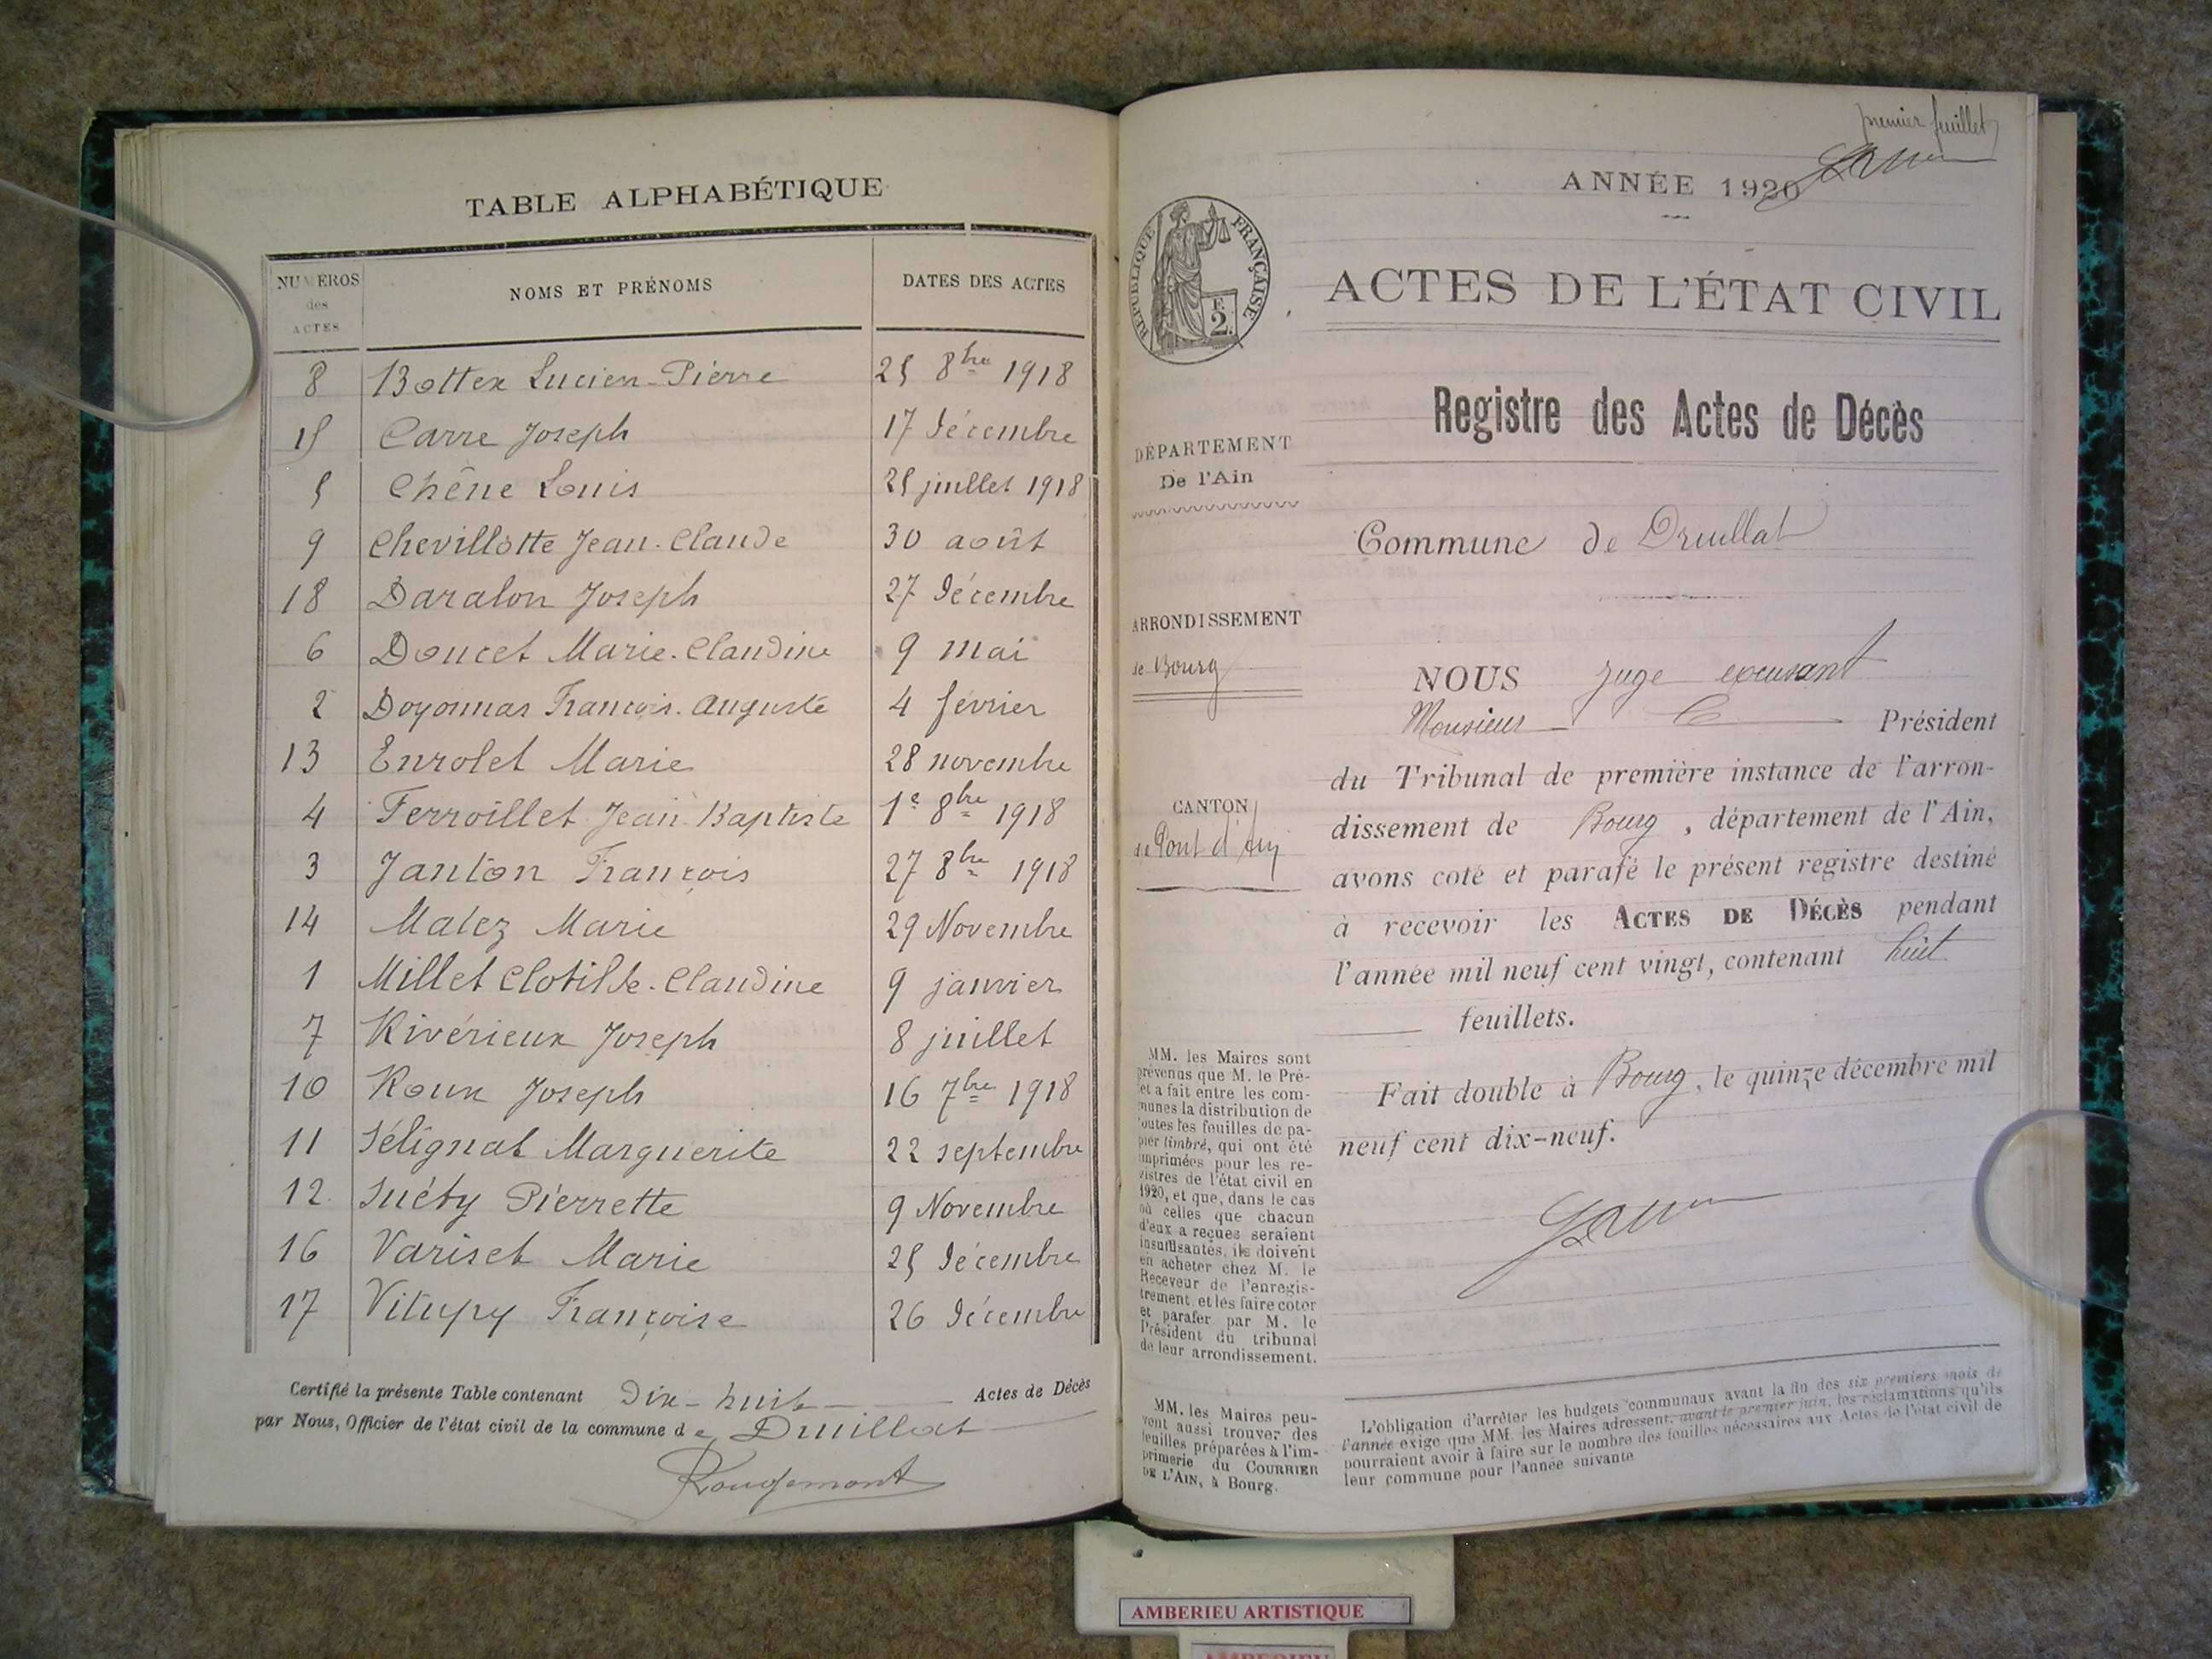 TABLE ALPHABÉTIQUE
NUMÉROS des ACTES NOMS ET PRÉNOMS DATES DES ACTES
8 Bottex Lucien-Pierre 25 8bre 1918
15 Carre Joseph 17 décembre
5 Chêne Louis 25 juillet 1918
9 Chevillotte Jean-Claude 30 août
18 Daralon Joseph 27 décembre
6 Doucet Marie-Claudine 9 mai
2 Doyonnas François-Auguste 4 février
13 Enrolet Marie 28 novembre
4 Ferroillet Jean Baptiste 1e 8bre 1918
3 Janton François 27 8bre 1918
14 Malez Marie 29 Novembre
1 Millet Clotilde-Claudine 9 janvier
7 Rivérieux Joseph 8 juillet
10 Roux Joseph 16 7bre 1918
11 Sélignat Marguerite 22 septembre
12 Suéty Pierrette 9 Novembre
16 Variset Marie 25 décembre
17 Vitupy Françoise 26 décembre
Certifié la présente Table contenant Dix-huit Actes de Décès
par Nous, Officier de l'état civil de la commune de Druillat
Rougemont
premier feuillet
ANNÉE 1920
RÉPUBLIQUE FRANÇAISE
E 2
ACTES DE L'ÉTAT CIVIL
Registre des Actes de Décès
DÉPARTEMENT
De l'Ain
Commune de Druillat
ARRONDISSEMENT
de Bourg
CANTON
de Pont d'Ain
NOUS Juge excusant
Monsieur le Président
du Tribunal de première instance de l'arron-
dissement de Bourg, département de l'Ain,
avons coté et parafé le présent registre destiné
à recevoir les ACTES DE DÉCÈS pendant
l'année mil neuf cent vingt, contenant huit
feuillets.
Fait double à Bourg, le quinze décembre mil
neuf cent dix-neuf.
MM. les Maires sont
prévenus que M. le Pré-
fet a fait entre les com-
munes la distribution de
toutes les feuilles de pa-
pier timbré, qui ont été
imprimées pour les re-
gistres de l'état civil en
1920, et que, dans le cas
où celles que chacun
d'eux a reçues seraient
insuffisantes, ils doivent
en acheter chez M. le
Receveur de l'enregis-
trement, et les faire coter
et parafer par M. le
Président du tribunal
de leur arrondissement.
MM. les Maires peu-
vent aussi trouver des
feuilles préparées à l'im-
primerie du COURRIER
DE L'AIN, à Bourg.
L'obligation d'arrêter les budgets communaux avant la fin des six premiers mois de
l'année exige que MM. les Maires adressent, avant le premier juin, les réclamations qu'ils
pourraient avoir à faire sur le nombre des feuilles nécessaires aux Actes de l'état civil de
leur commune pour l'année suivante.
AMBERIEU ARTISTIQUE
AMBERIEU